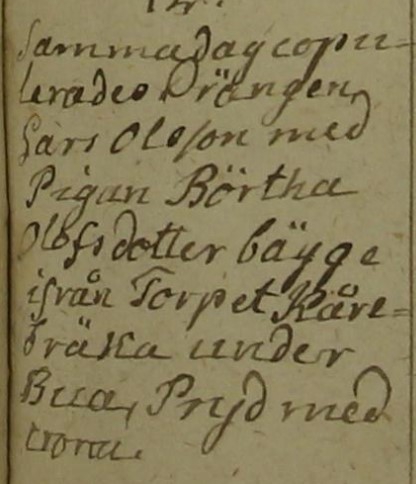 Samma dag copu-
lerades Drängen
Lars Olsson med
Pigan Börtha
Olofsdotter bäyge
ifrån Torpet Kåre-
bräka under
Bua, Pryd med
crona.